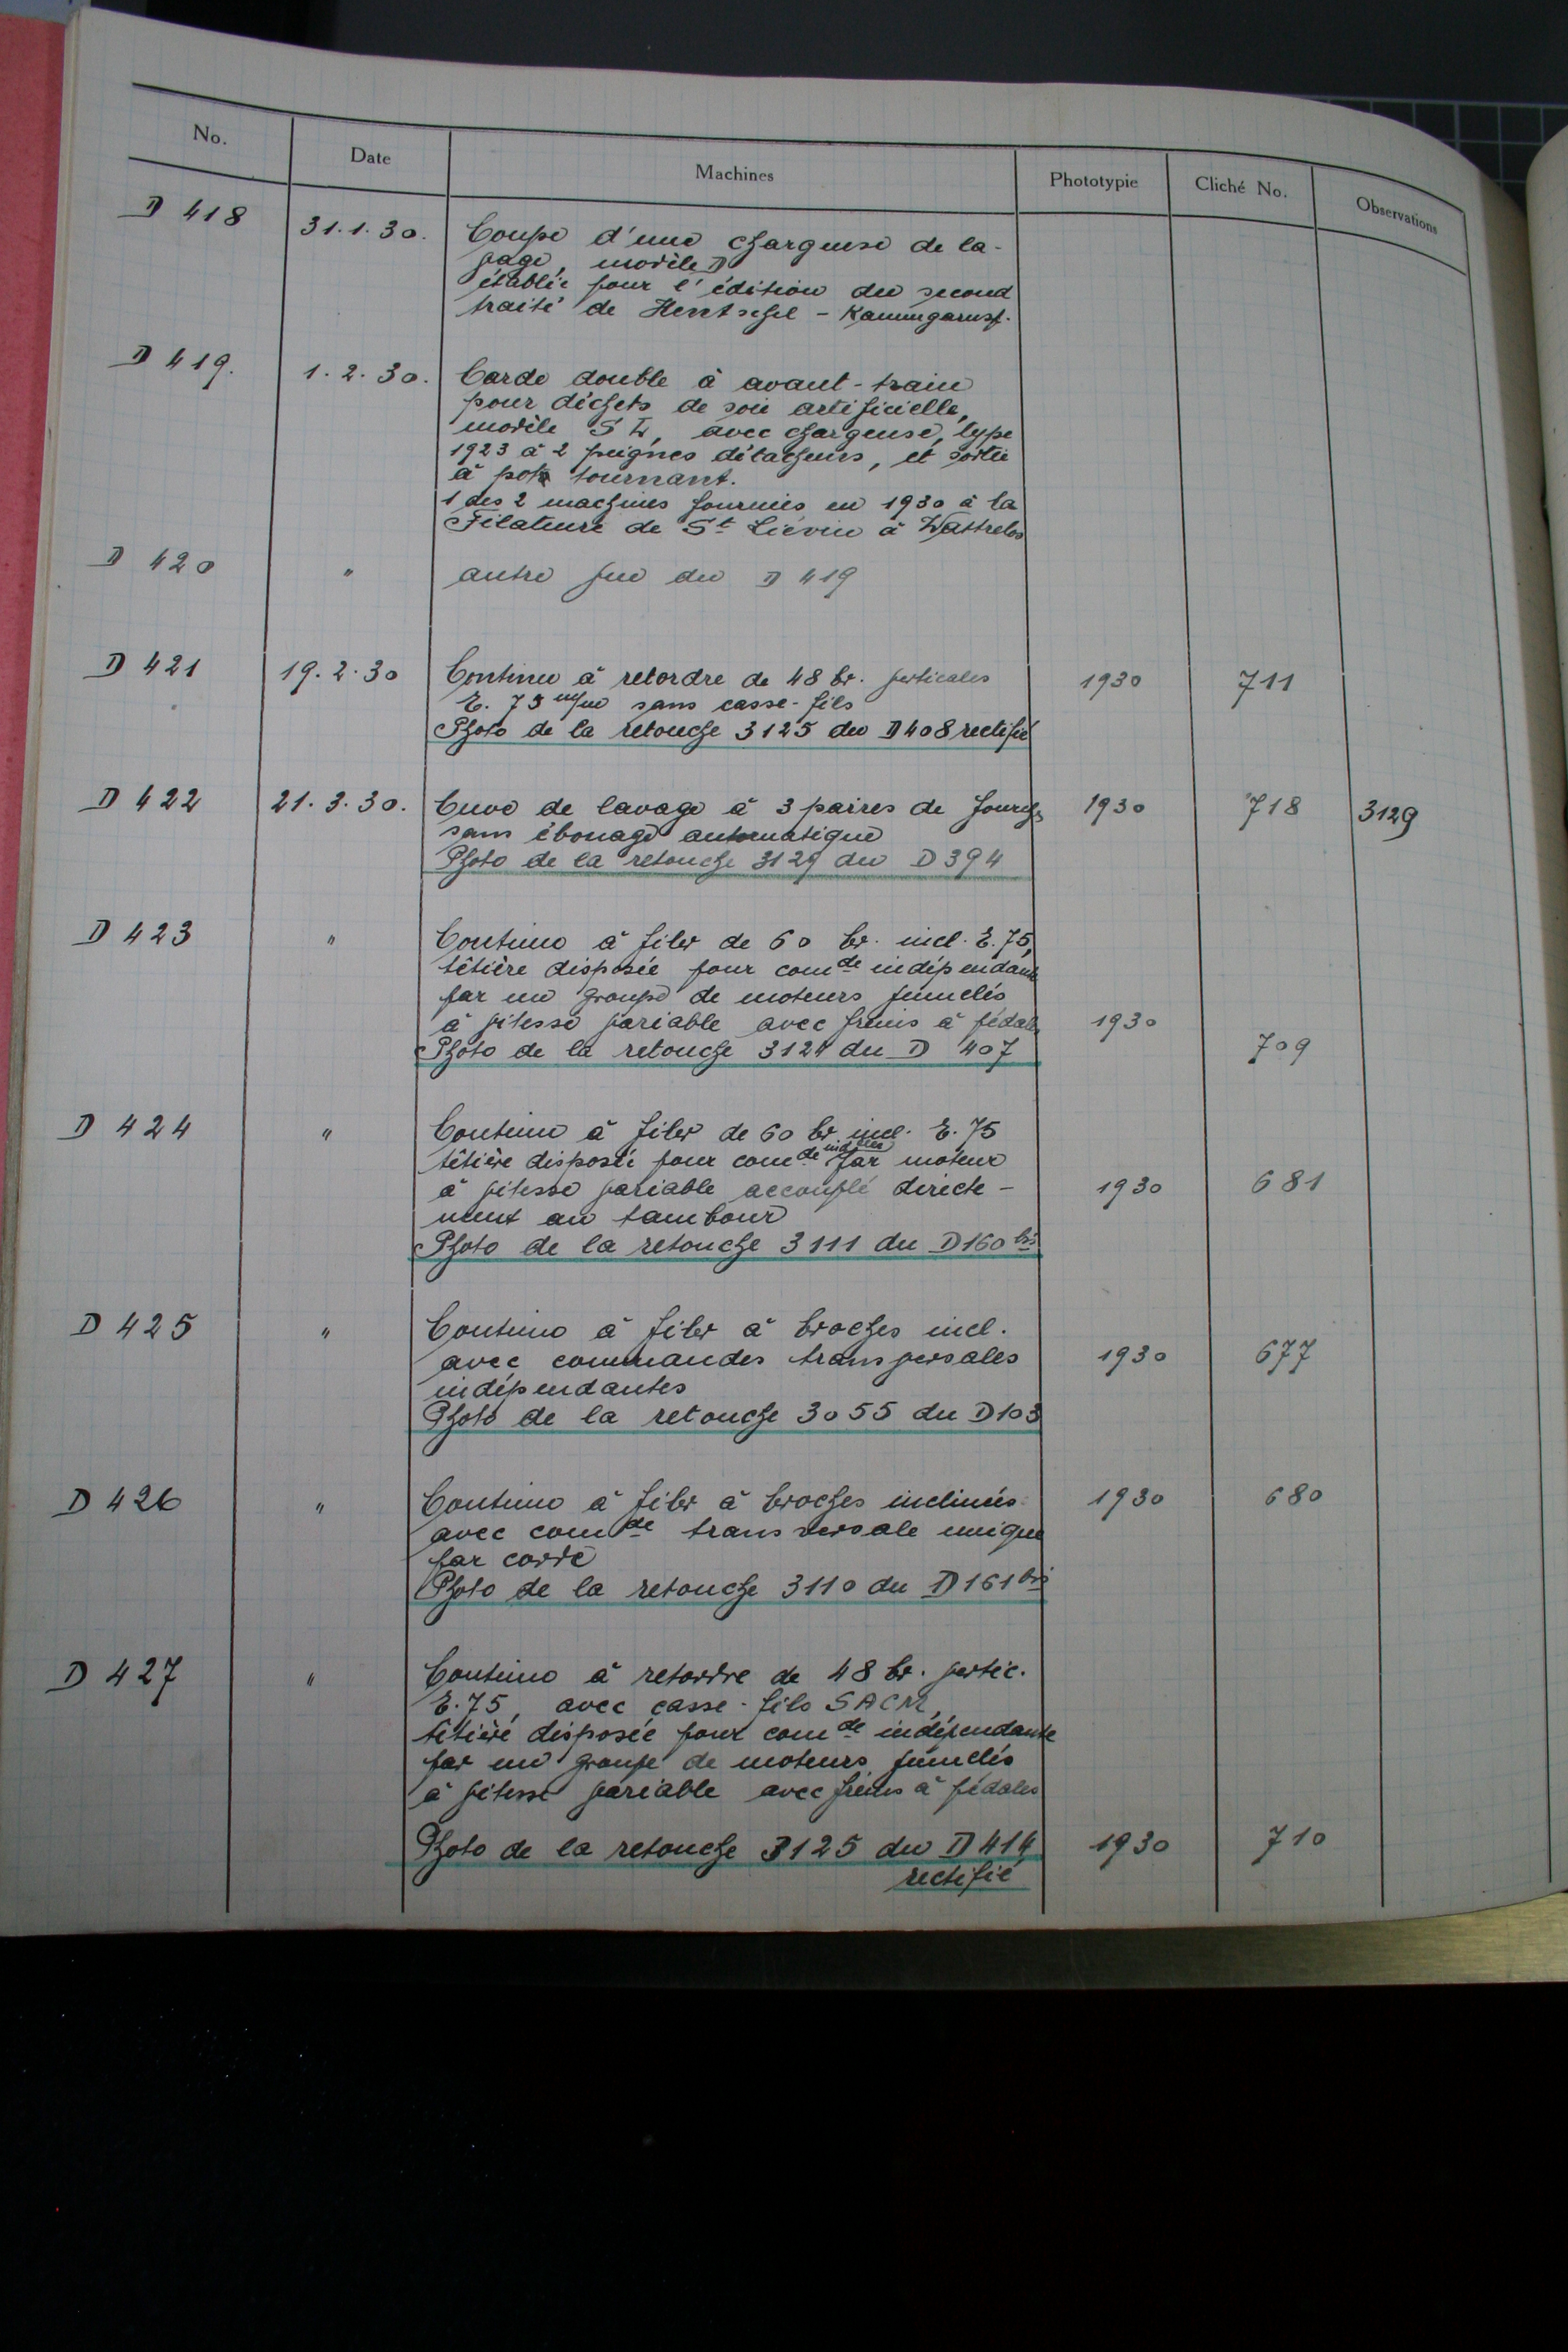 No. Date Machines Phototypie Cliché No. Observations
D 418 31.1.30. Coupe d'une chargeuse de la-
page, modèle D
établie pour l'édition du second
traité de Hentschel - Kammgarnsp.
D 419. 1.2.30. Carde double à avant-train
pour déchets de soie artificielle,
modèle avec chargeuse, type
1923 à 2 peignes détacheurs, et sortie
à pot tournant.
1 des 2 machines fournies en 1930 à la
Filature de St Liévin à Wattrelos
D 420 " autre vue du D 419
D 421 19.2.30 Continu à retordre de 48 br. verticales 1930 711
E. 75 m/m sans casse-fils
Photo de la retouche 3125 du D 408 rectifié
D 422 21.3.30. Cuve de lavage à 3 paires de fourches 1930 718 3129
sans ébouage automatique
Photo de la retouche 3129 du D 394
D 423 " Continu à filer de 60 br. incl. E. 75,
têtière disposée pour comde indépendante
par un groupe de moteurs jumelés
à vitesse variable avec freins à pédales 1930
Photo de la retouche 3124 du D 407 709
D 424 " Continu à filer de 60 br incl. E. 75
têtière disposée pour comde par moteur
à vitesse variable accouplé directe- 1930 681
ment au tambour
Photo de la retouche 3111 du D 160 bis
D 425 " Continu à filer à broches incl.
avec commandes transversales 1930 677
indépendantes
Photo de la retouche 3055 du D 103
D 426 " Continu à filer à broches inclinées 1930 680
avec comde transversale unique
par corde
Photo de la retouche 3110 du D 161 bis
D 427 " Continu à retordre de 48 br. vertic.
E. 75, avec casse-fils SACM,
têtière disposée pour comde indépendante
par un groupe de moteurs jumelés
à vitesse variable avec freins à pédales
Photo de la retouche 3125 du D 414 1930 710
rectifié